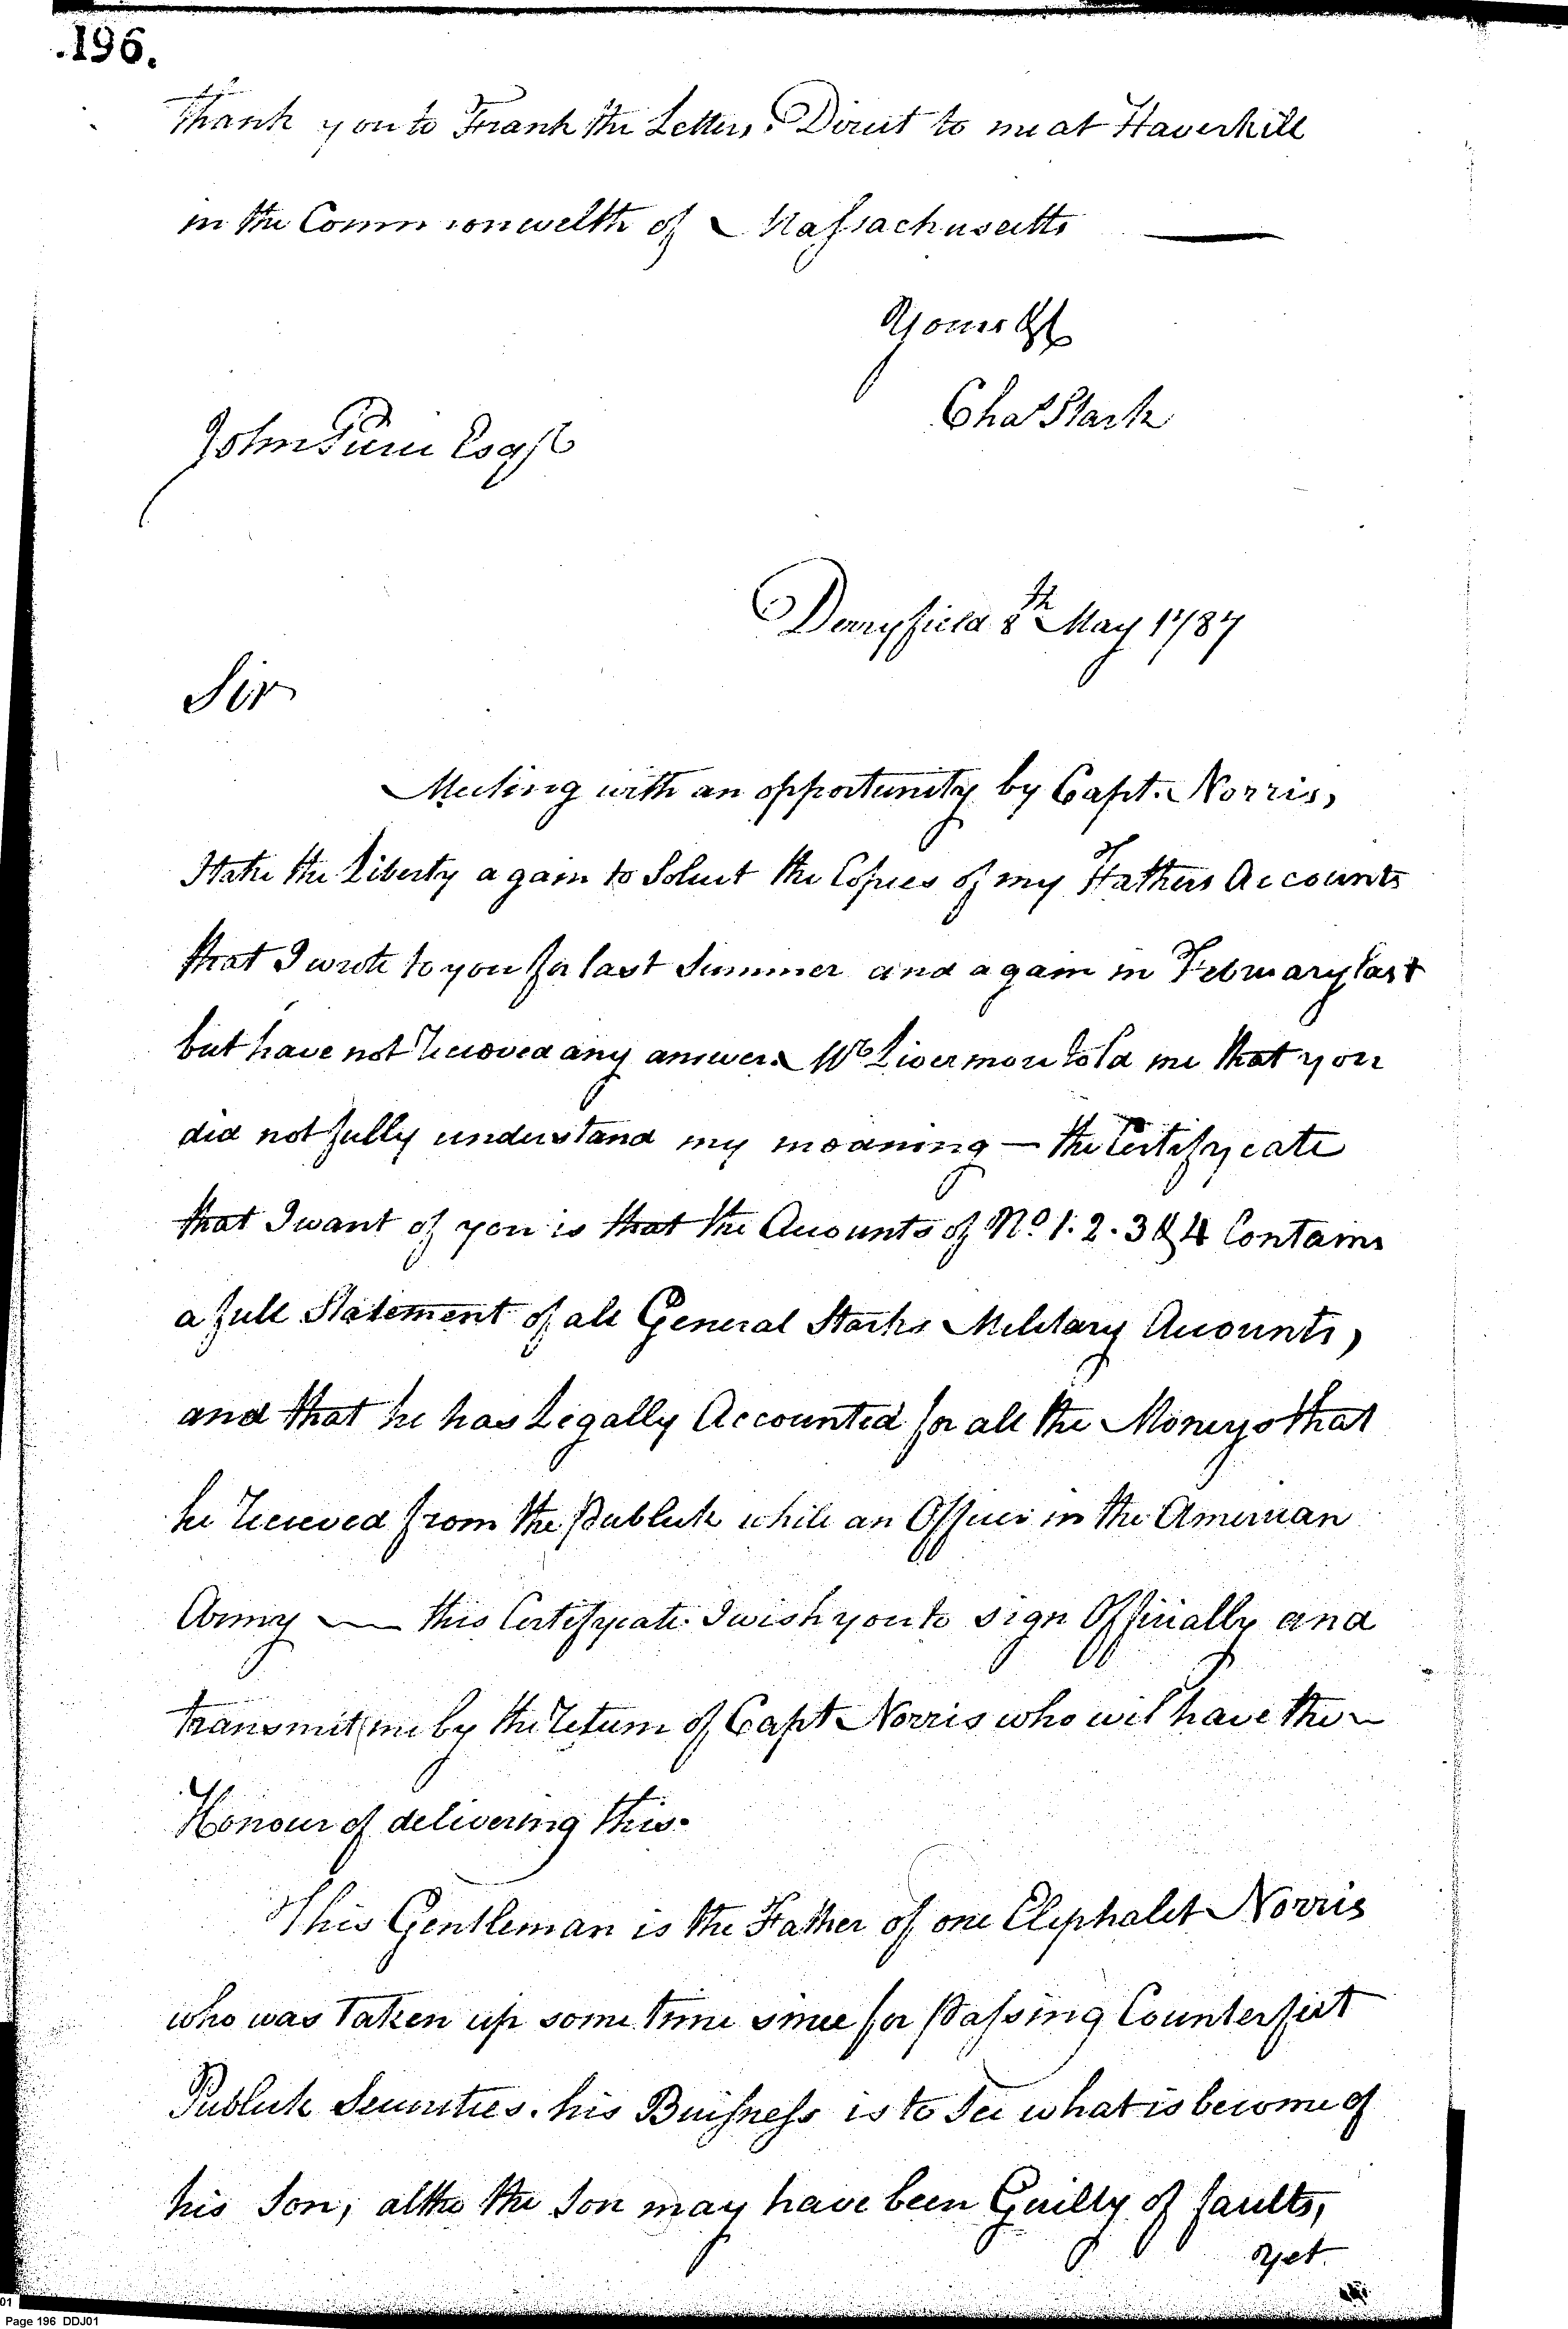 .196.
thank you to Frank the Letters. Direct to me at Haverhill
in the Commonwelth of Massachusetts
Yours &c
Chas Stark
John Pierce Esqr
Derryfield 8th May 1787
Sir
Meeting with an opportunity by Capt. Norris,
I take the Liberty again to Solicit the Copies of my Fathers Accounts
that I wrote to you for last Summer and again in February last
but have not recieved any answer. Mr Livermore told me that you
did not fully understand my meaning — the Certifycate
that I want of you is that the Accounts of No. 1. 2. 3 & 4 Contains
a full Statement of all General Starks Military Accounts,
and that he has Legally Accounted for all the Moneys that
he recieved from the Publick while an Officer in the American
Army — this Certifycate I wish you to sign Officially and
transmit me by the return of Capt Norris who will have the
Honour of delivering this.
This Gentleman is the Father of one Eliphalet Norris
who was taken up some time since for passing Counterfiet
Publick Securities. his Buisness is to See what is become of
his Son, altho the Son may have been Guilty of faults,
yet
01
Page 196 DDJ01